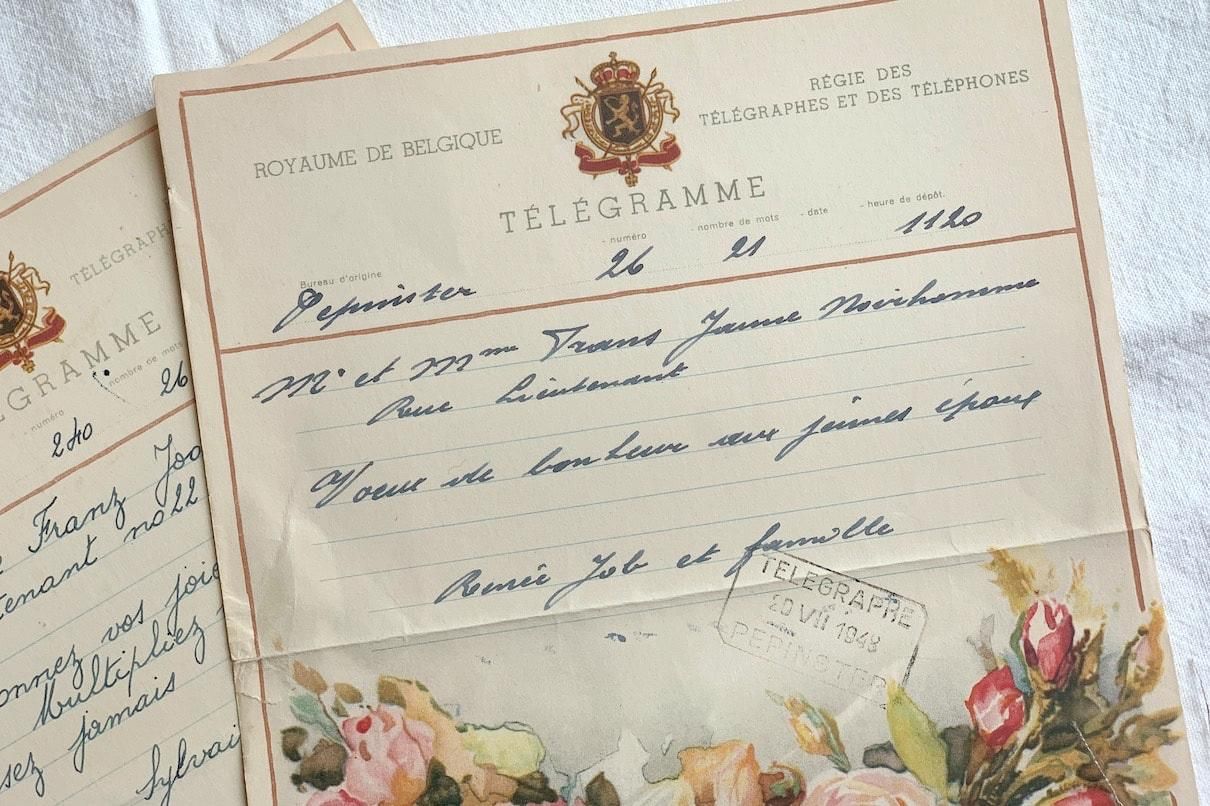 ROYAUME DE BELGIQUE
RÉGIE DES
TÉLÉGRAPHES ET DES TÉLÉPHONES
TÉLÉGRAMME
Bureau d'origine - numéro - nombre de mots - date - heure de dépôt.
Pepinster 26 21 1120
Mr et Mme Frans Jamme Noirhomme
Rue Lieutenant
Voeux de bonheur aux jeunes époux
Renée Job et famille
TELEGRAPHE
20 VII 1948
PEPINSTER
TÉLÉGRAPH
EGRAMME
- numéro nombre de mots
240 26
Franz
tenant no 22
onnez vos joie
Multipliez
sez jamais
Sylvai